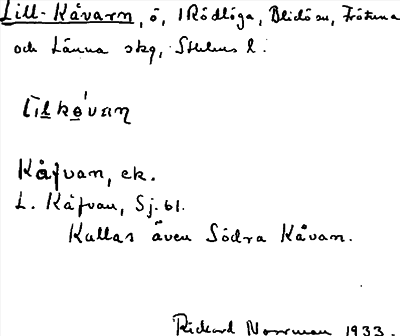 Lill-Kåvarn, ö, i Rödlöga, Blidö sn, Frötuna
och Länna skg, Sthlms l.
Kåfvan, ek.
L. Kåfvan, Sj. 61.
Kallas även Södra Kåvan.
Rickard Norrman 1933.